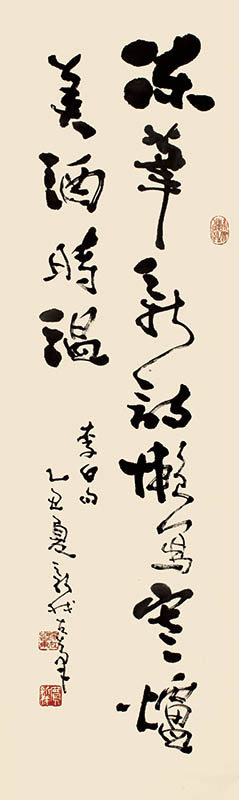 凍筆新詩懶寫寒爐
美酒時温
李白句
乙丑夏